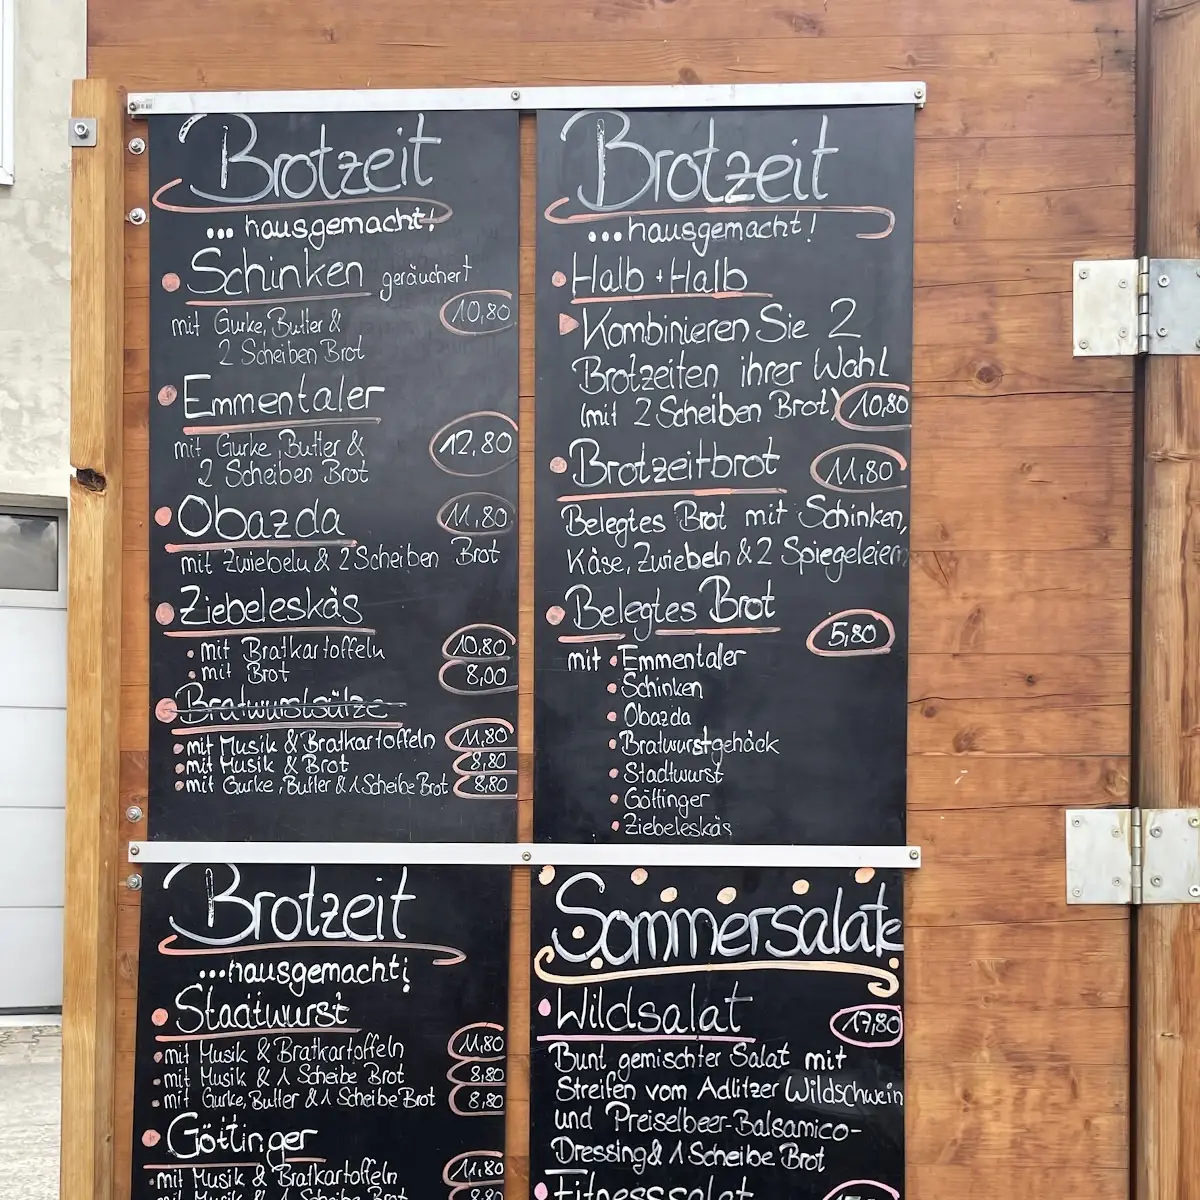 Brotzeit
... hausgemacht!
Schinken geräuchert
mit Gurke, Butter & 10,80
2 Scheiben Brot
Emmentaler
mit Gurke, Butter & 12,80
2 Scheiben Brot
Obazda 11,80
mit Zwiebeln & 2 Scheiben Brot
Ziebeleskäs
• mit Bratkartoffeln 10,80
• mit Brot 8,00
Bratwurstsülze
• mit Musik & Bratkartoffeln 11,80
• mit Musik & Brot 8,80
• mit Gurke, Butter & 1 Scheibe Brot 8,80
Brotzeit
...hausgemacht!
Halb + Halb
Kombinieren Sie 2
Brotzeiten ihrer Wahl
(mit 2 Scheiben Brot) 10,80
Brotzeitbrot 11,80
Belegtes Brot mit Schinken,
Käse, Zwiebeln & 2 Spiegeleiern
Belegtes Brot
5,80
mit • Emmentaler
• Schinken
• Obazda
• Bratwurstgehäck
• Stadtwurst
• Göttinger
• Ziebeleskäs
Brotzeit
...hausgemacht!
Stadtwurst
• mit Musik & Bratkartoffeln 11,80
• mit Musik & 1 Scheibe Brot 8,80
• mit Gurke, Butter & 1 Scheibe Brot 8,80
Göttinger
• mit Musik & Bratkartoffeln 11,80
mit Musik & 1 Scheibe Brot 8,80
Sommersalate
Wildsalat 17,80
Bunt gemischter Salat mit
Streifen vom Adlitzer Wildschwein
und Preiselbeer-Balsamico-
Dressing & 1 Scheibe Brot
Fitnesssalat